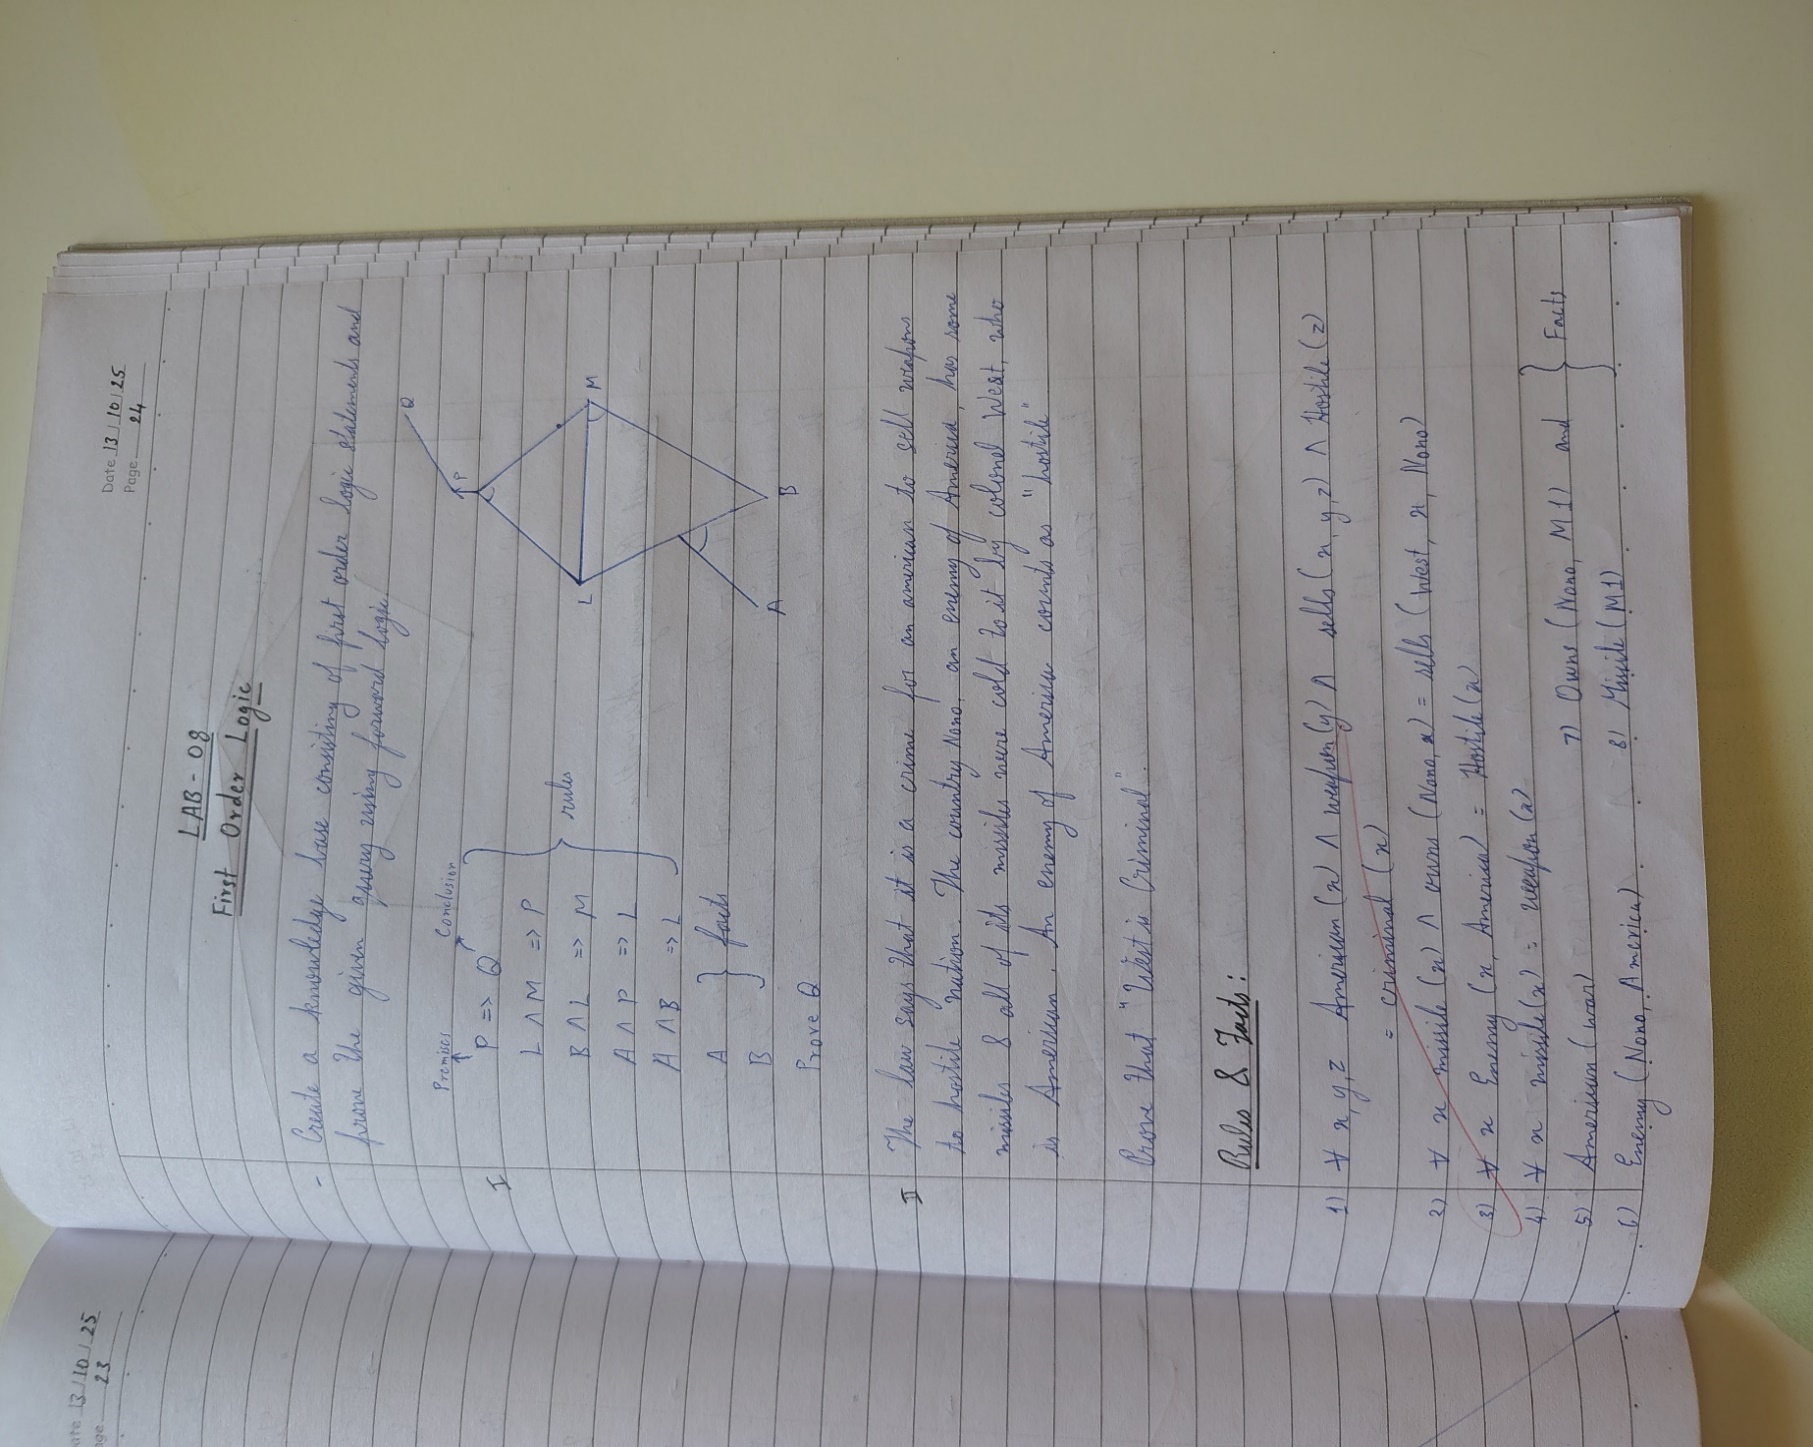 Date 13/10/25
Page 24
LAB-08
First Order Logic
- Create a knowledge base consisting of first order logic statements and
prove the given query using forward logic.
Premises Conclusion
I P => Q
L ∧ M => P
B ∧ L => M
A ∧ P => L
A ∧ B => L
rules
A
B
facts
Prove Q
Q
P
M
L
B
A
II The law says that it is a crime for an american to sell weapons
to hostile nation. The country Nono, an enemy of America, has some
missiles & all of its missiles were sold to it by colonel West, who
is American. An enemy of America counts as "hostile"
Prove that "West is Criminal".
Rules & Facts:
1) ∀ x,y,z American (x) ∧ weapon(y) ∧ sells(x,y,z) ∧ Hostile(z)
= criminal (x)
2) ∀ x missile (x) ∧ owns (Nono, x) = sells (West, x, Nono)
3) ∀ x Enemy (x, America) = Hostile(x)
4) ∀ x missile(x) = weapon(x)
5) American ( 7) Owns (Nono, M1) and
6) Enemy (Nono, America) 8) Missile (M1)
Facts
Date 13/10/25
age 23